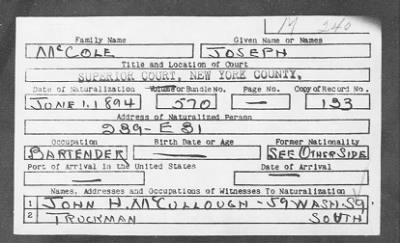 17 240
Family Name Given Name or Names
McCOLE JOSEPH
Title and Location of Court
SUPERIOR COURT, NEW YORK COUNTY,
Date of Naturalization Volume or Bundle No. Page No. Copy of Record No.
JUNE 1, 1894 570 — 193
Address of Naturalized Person
239-E 31
Occupation Birth Date or Age Former Nationality
BARTENDER SEE OTHER SIDE
Port of Arrival in the United States Date of Arrival
Names, Addresses and Occupations of Witnesses To Naturalization
1 JOHN H. McCULLOUGH - 59 WASH. SQ
2 TRUCKMAN SOUTH